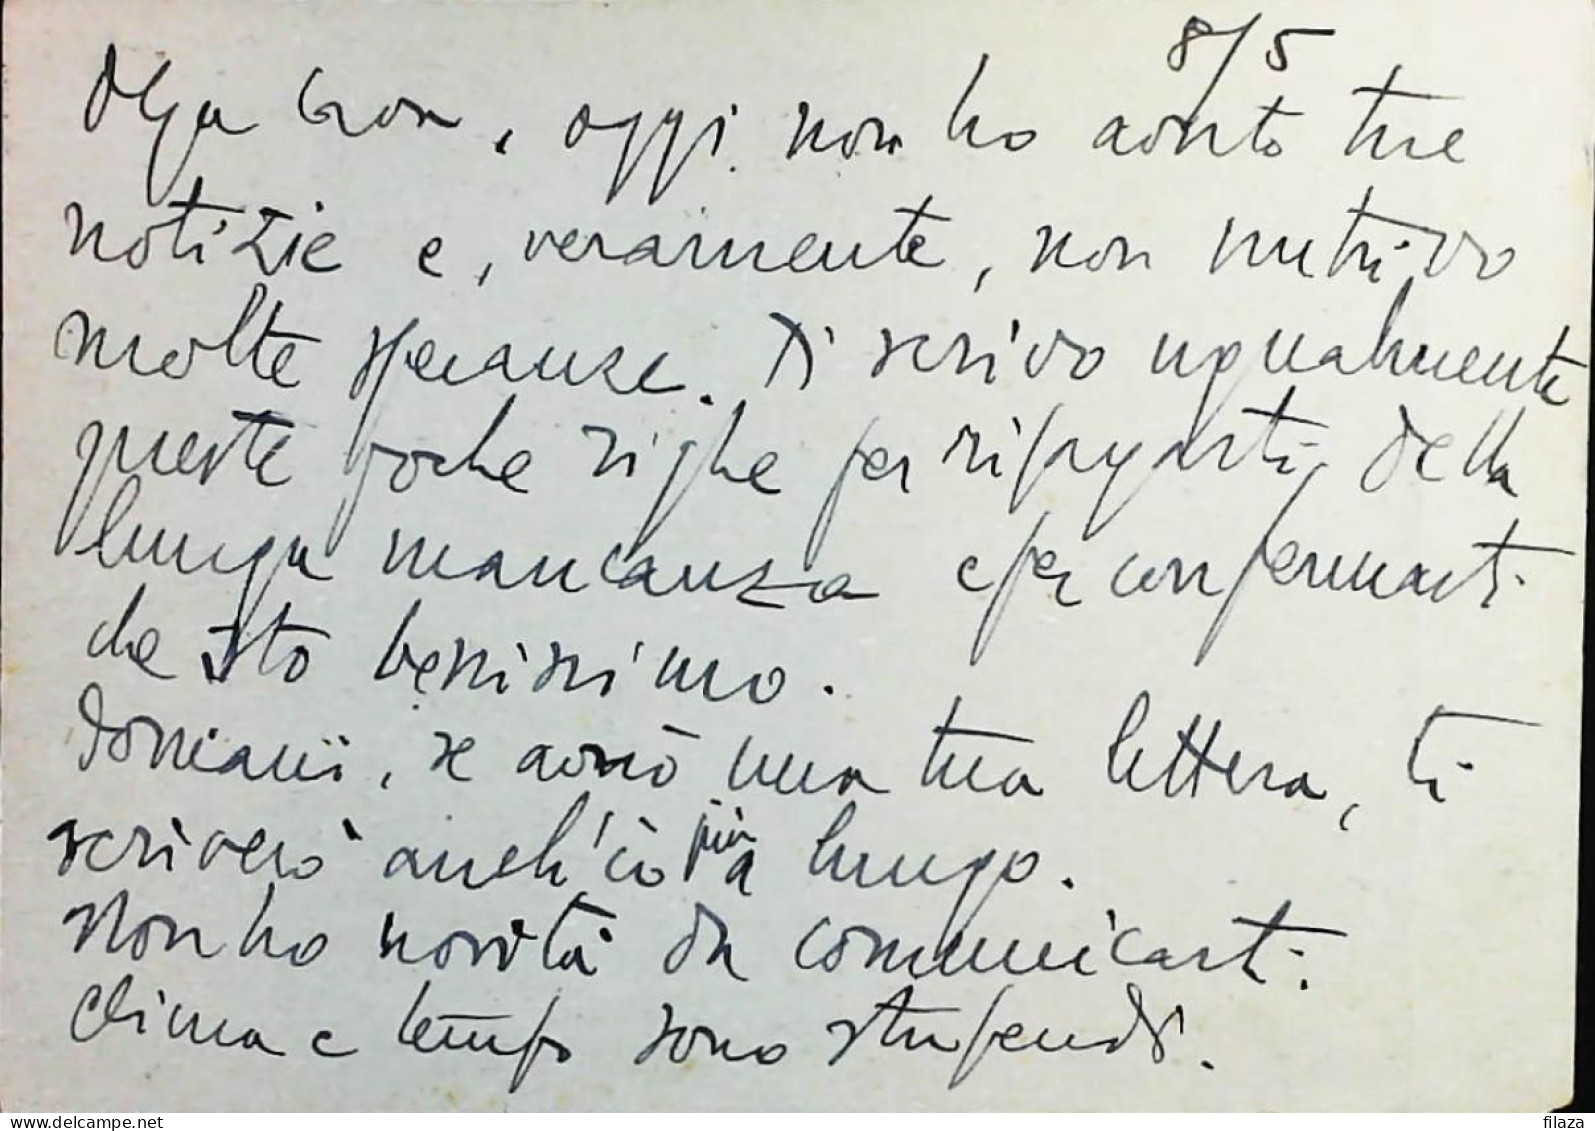 8/5
Olga cara, oggi non ho avuto tue
notizie e, veramente, non nutrivo
molte speranze. Ti scrivo ugualmente
queste poche righe per ripagarti della
lunga mancanza e per confermarti
che sto benissimo.
Domani, se avrò una tua lettera, ti
scriverò anch'io più a lungo.
Non ho novità da comunicarti.
Clima e tempo sono stupendi.
www.delcampe.net
filaza